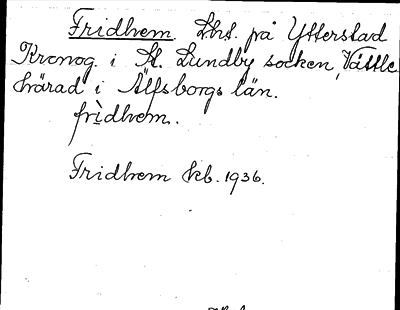 Fridhem Lht. på Ytterstad
Kronog. i St. Lundby socken, Vättle
härad i Älfsborgs län.
frìdhem.
Fridhem kb. 1936.